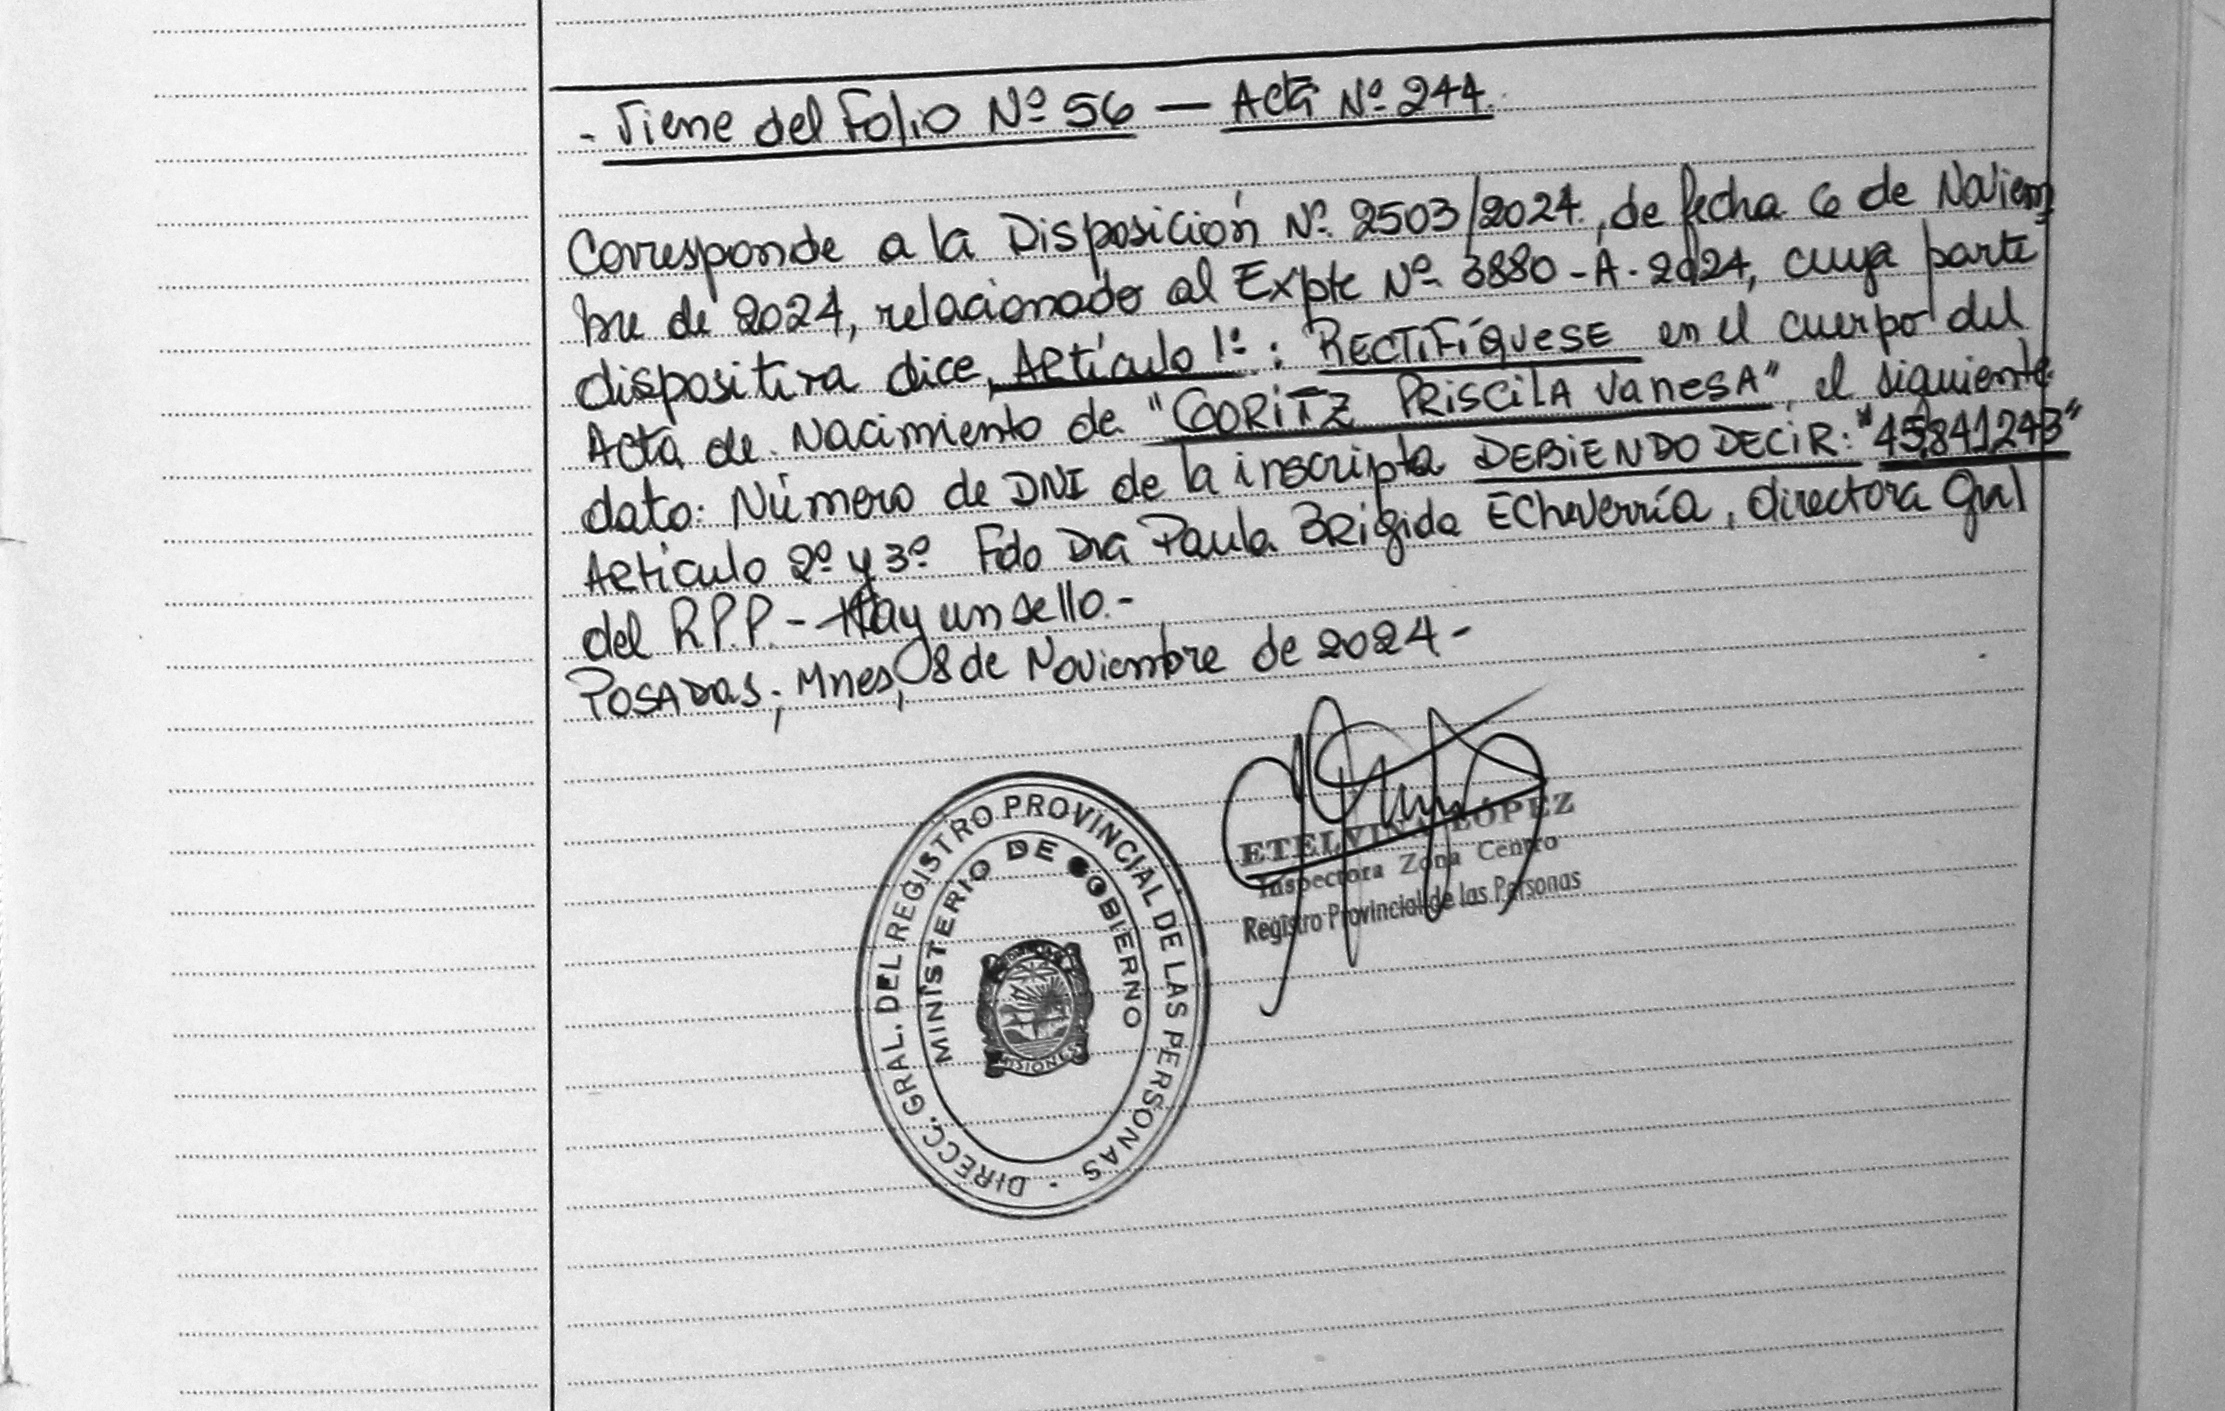 - Viene del Folio Nº 56 — Acta Nº 244.
Corresponde a la Disposición Nº 2503/2024, de fecha 6 de Noviem
bre de 2024, relacionado al Expte Nº 3880-A-2024, cuya parte
dispositiva dice, Artículo 1º: RECTIFÍQUESE en el cuerpo del
Acta de Nacimiento de "GORITZ PRISCILA VANESA", el siguiente
dato: Número de DNI de la inscripta DEBIENDO DECIR: "45.841.243"
Artículo 2º y 3º Fdo Dra Paula Brigida Echeverría, directora Gral
del R.P.P. - Hay un sello.-
Posadas, Mnes, 8 de Noviembre de 2024-
DIRECC. GRAL. DEL REGISTRO PROVINCIAL DE LAS PERSONAS
MINISTERIO DE GOBIERNO
MISIONES
ETELVINA LÓPEZ
Inspectora Zona Centro
Registro Provincial de las Personas